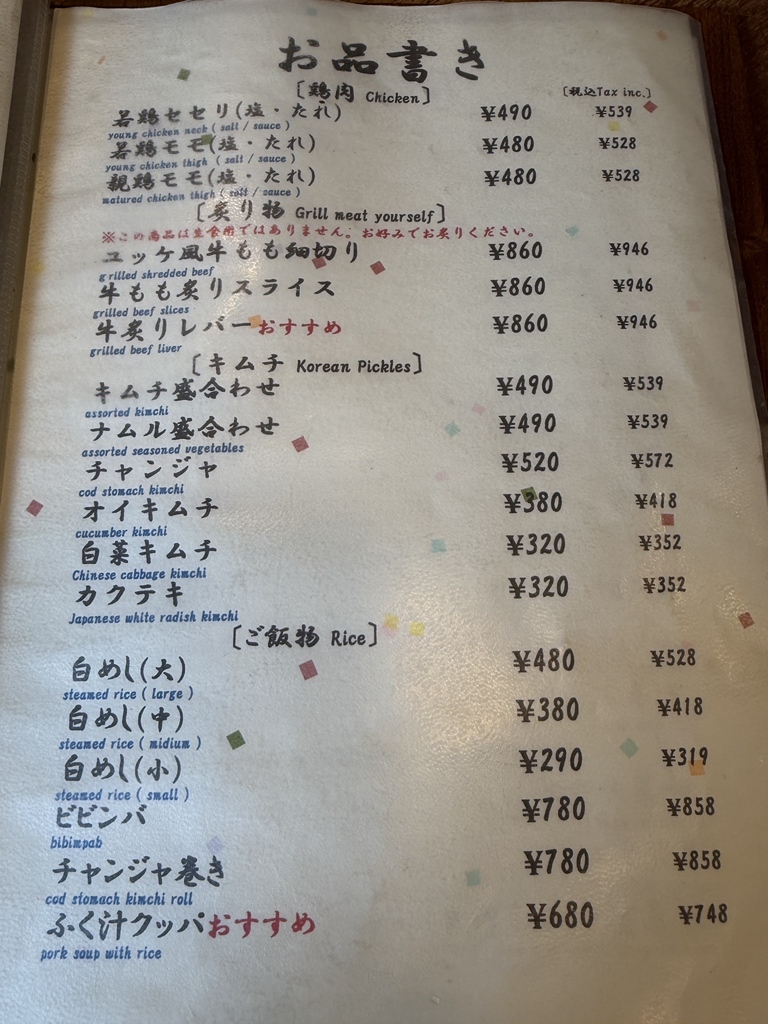 お品書き
[鶏肉 Chicken] (税込Tax inc.)
若鶏セセリ(塩・たれ) ¥490 ¥539
young chicken neck ( salt / sauce )
若鶏モモ(塩・たれ) ¥480 ¥528
young chicken thigh ( salt / sauce )
親鶏モモ(塩・たれ) ¥480 ¥528
matured chicken thigh ( salt / sauce )
[炙り物 Grill meat yourself]
※この商品は生食用ではありません。お好みでお炙りください。
ユッケ風牛もも細切り ¥860 ¥946
grilled shredded beef
牛もも炙りスライス ¥860 ¥946
grilled beef slices
牛炙りレバーおすすめ ¥860 ¥946
grilled beef liver
[キムチ Korean Pickles]
キムチ盛合わせ ¥490 ¥539
assorted kimchi
ナムル盛合わせ ¥490 ¥539
assorted seasoned vegetables
チャンジャ ¥520 ¥572
cod stomach kimchi
オイキムチ ¥380 ¥418
cucumber kimchi
白菜キムチ ¥320 ¥352
Chinese cabbage kimchi
カクテキ ¥320 ¥352
Japanese white radish kimchi
[ご飯物 Rice]
白めし(大) ¥480 ¥528
steamed rice ( large )
白めし(中) ¥380 ¥418
steamed rice ( midium )
白めし(小) ¥290 ¥319
steamed rice ( small )
ビビンバ ¥780 ¥858
bibimpab
チャンジャ巻き ¥780 ¥858
cod stomach kimchi roll
ふく汁クッパおすすめ ¥680 ¥748
pork soup with rice